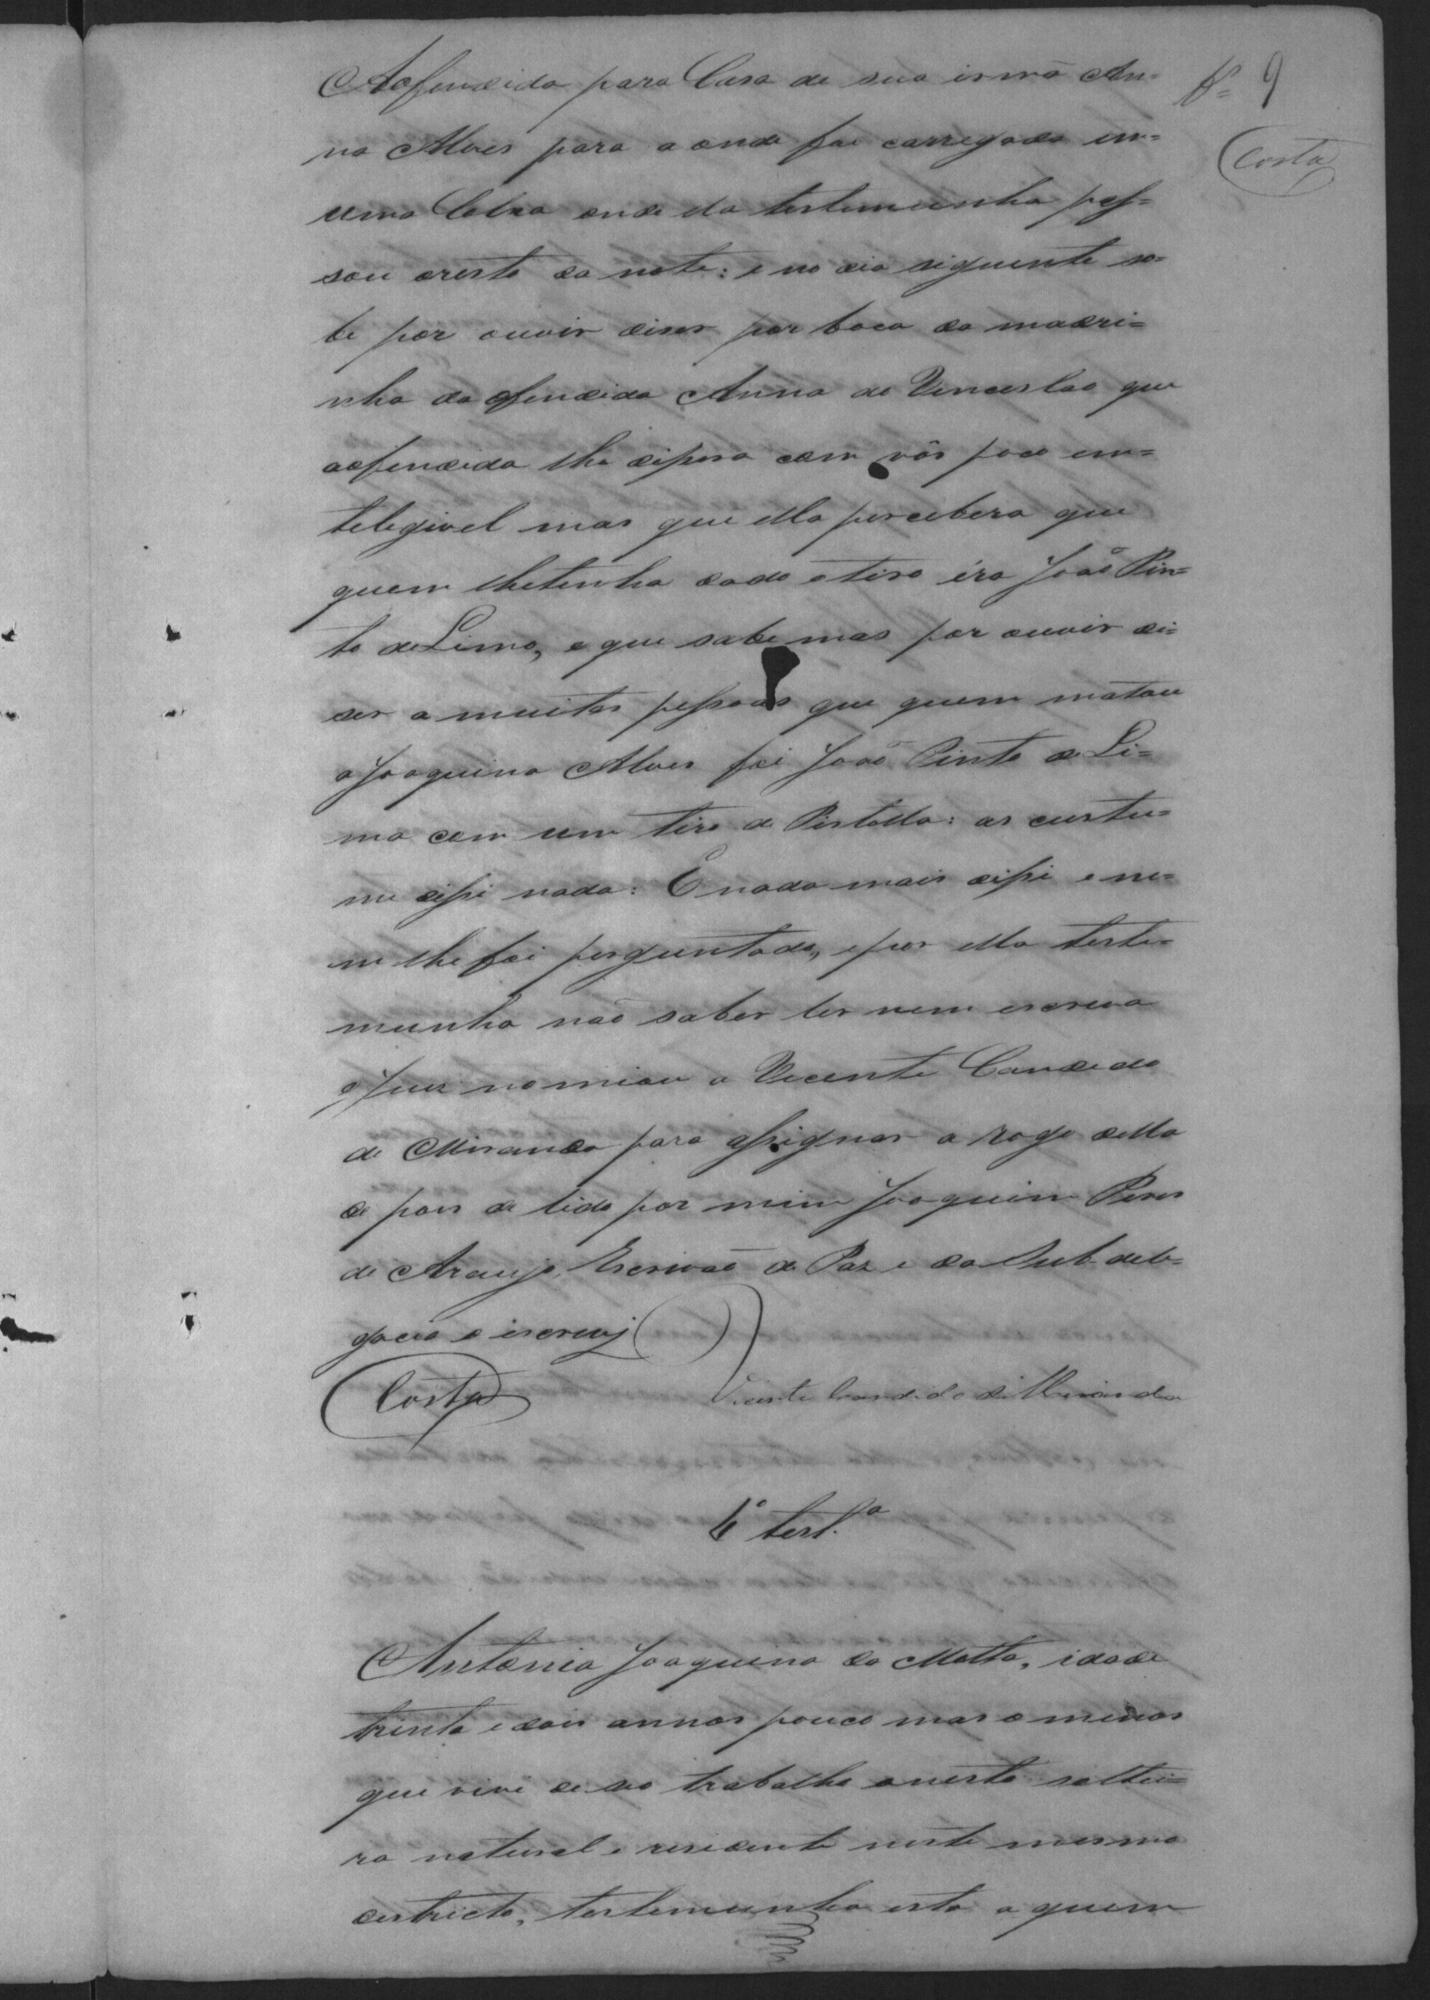 fs 9
Costa
Aofendida para Casa de sua irmã An=
na Alves para a onde foi carregada em=
uma   onde ella testemunha pas=
sou oresto da note: e no dia siguente so=
be por ouvir diser por boca da madri=
nha da ofendida Anna de Vencesláo que
aofendida lhe dissera com vôs poco em=
telegivel mas que ella percebera que
quem lhetinha dado otiro éra João Pin=
to deLima, e que sabe mas por ouvir di=
ser a muitas pessoas que quem matou
a Joaquina Alves foi João Pinto de Li=
ma com um tiro de Pistolla: as custu=
me disse nada: E nada mais disse e ne=
m lhe foi perguntado, epor ella teste=
munha não saber ler nem escrever
o Juiz nomiou a Vicente Candido
de Miranda para assignar a rogo della
de pois de lido por mim Joaquim Peres
de Araujo, Escrivão de Paz e da Sub dele-
gacia o escrevj
Costa
Vicente Candido de Miranda
6ª test.ª
Antonia Joaquina da Motta, idade
trinta e dois annos pouco mas o menos
que vive de seo trabalho onesto soltei=
ra natural e residente neste mesmo
destricto, testemunha esta a quem